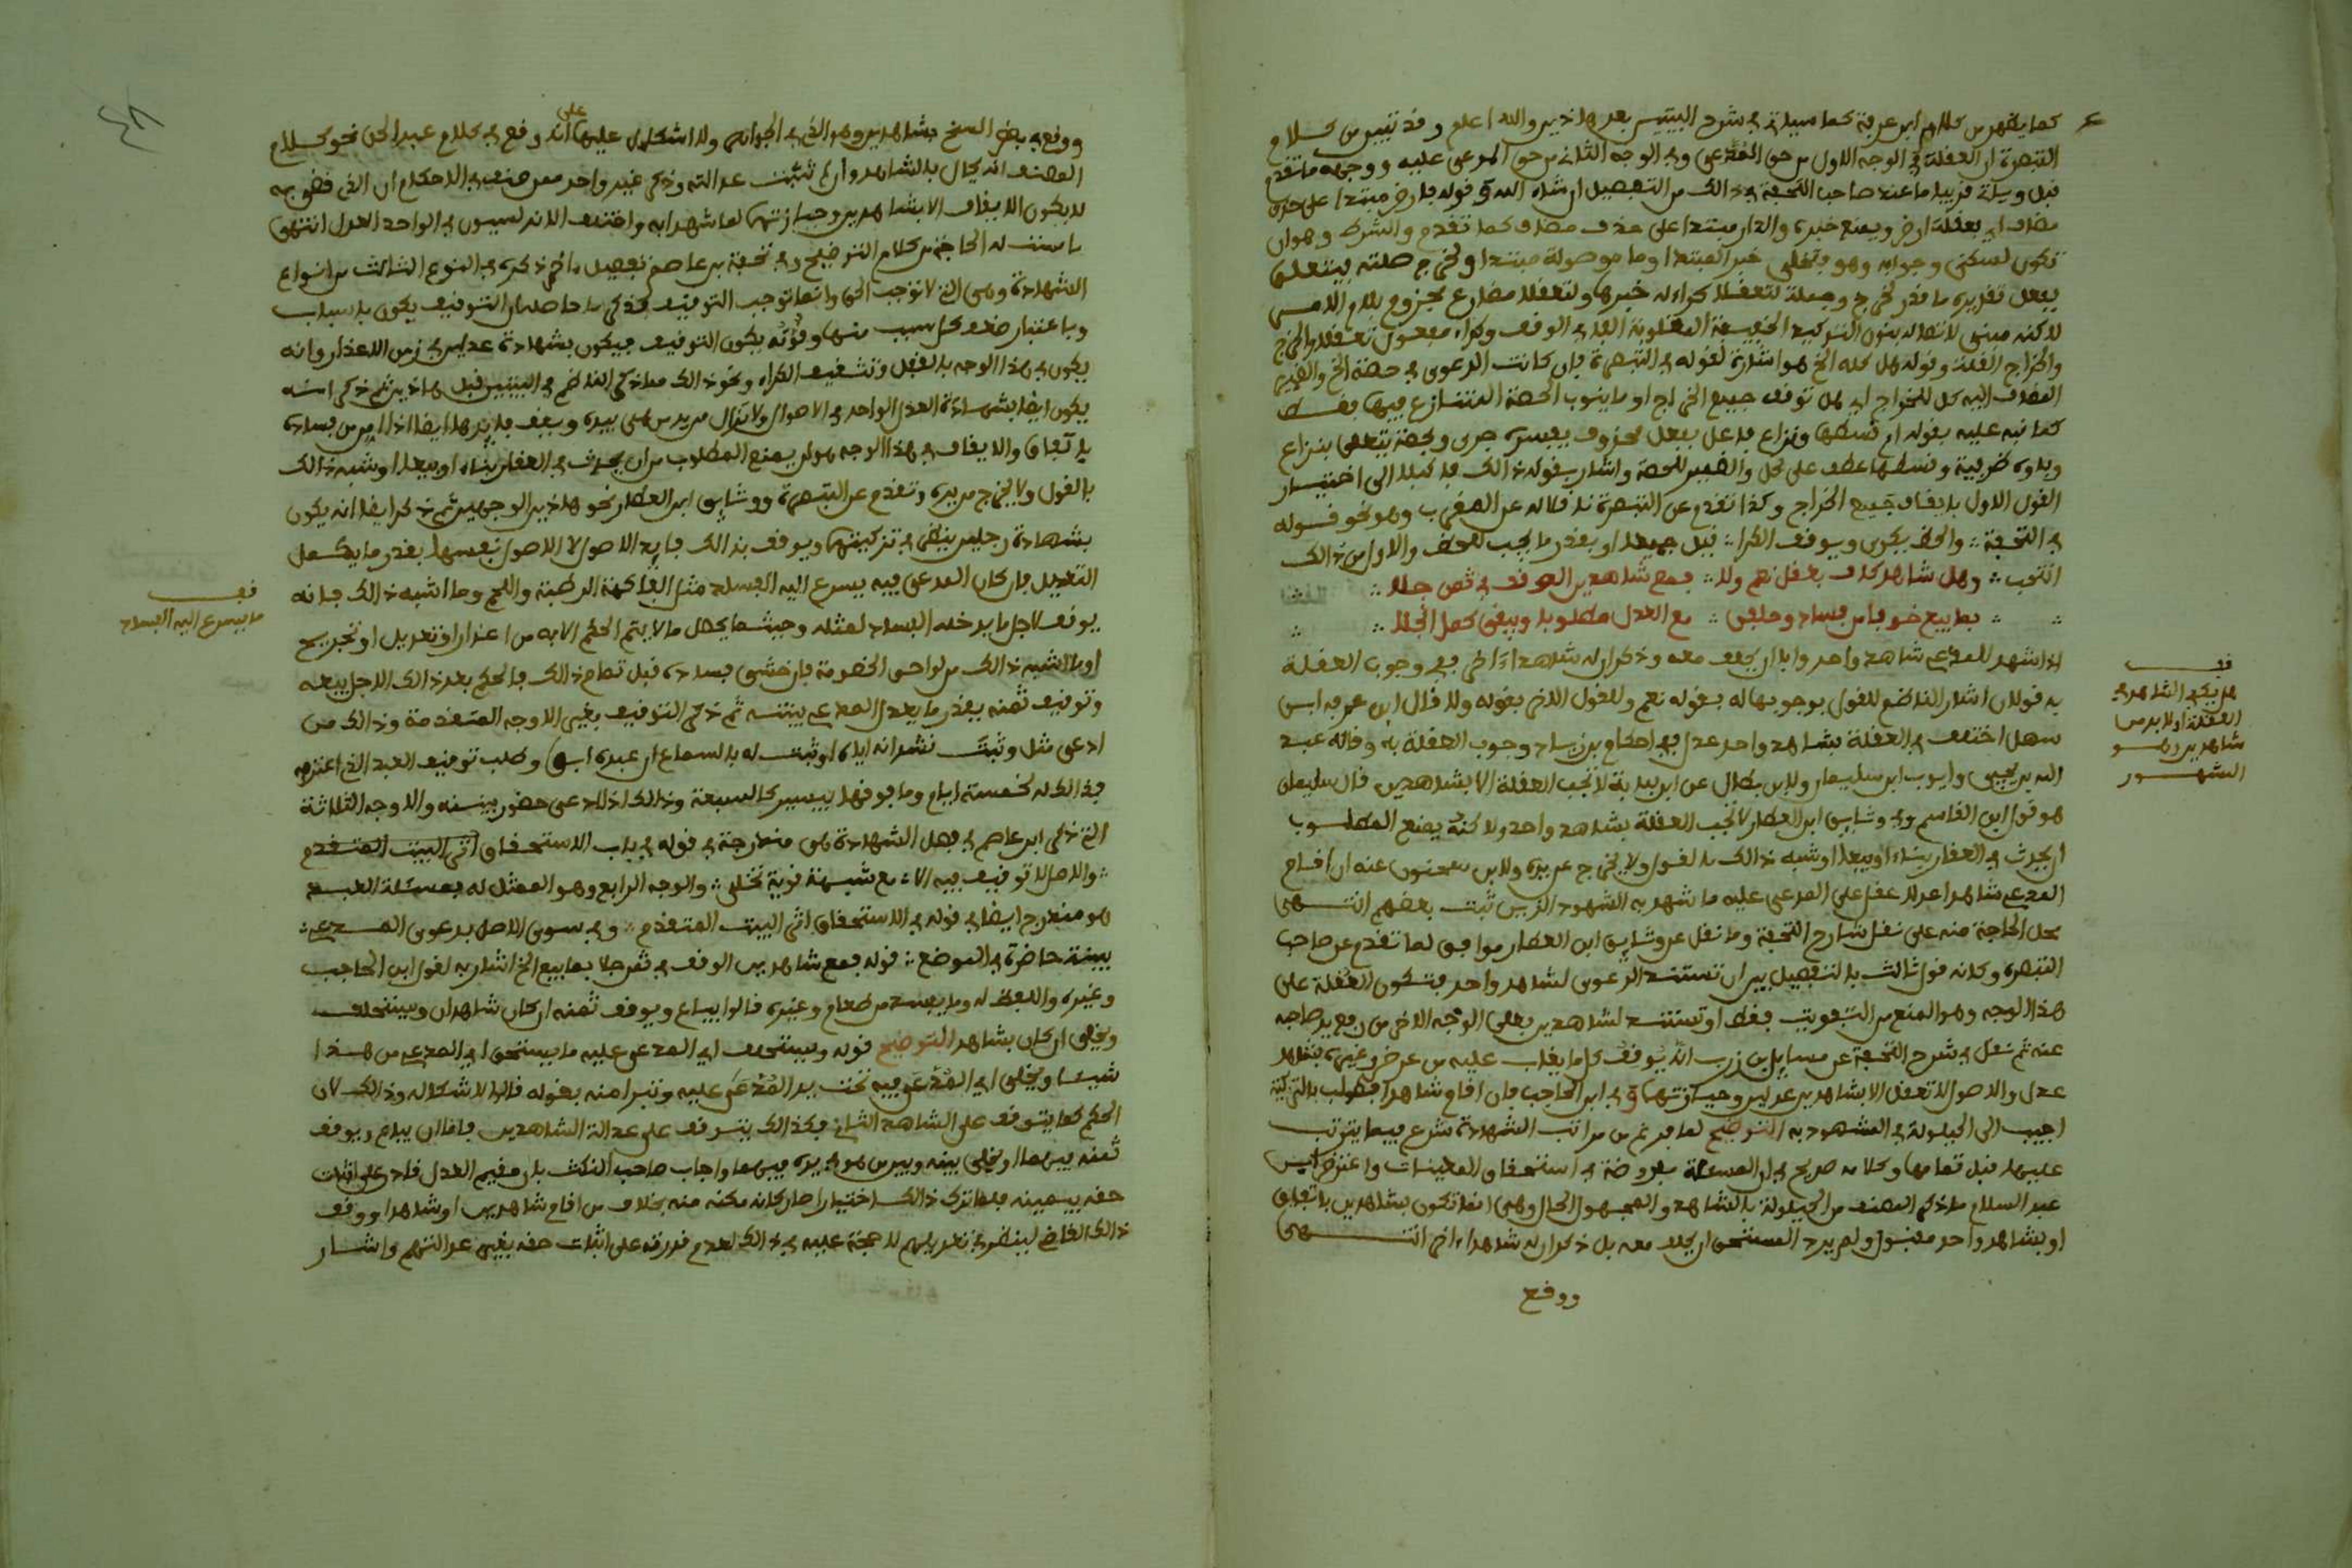 كما يظهر من كلام ابن عرفة كما سياتي في شرح البيتين بعد هاذين والله اعلم وقد تبين من كلام
التبصرة ان العقلة في الوجه الاول من حق المدعى وفي الوجه الثاني من حق المدعى عليه ووجهه ما تقدم
قبل وسياتي قريبا ما عند صاحب التحفة في ذالك من التفصيل ان شاء الله وقوله فارض مبتدا على حذف
مضاف اي بعقلة ارض ويمنع خبره والدار مبتدا على حذف مضاف كما تقدم والشرط وهو ان
تكون لسكنى وجوابه وهو خبر المبتدا وما موصولة مبتدا ولخرج صلته يتعلق
بفعل تقديره ما قدر لخرج وجملة لتعقلا كراءه خبرها ولتعقلا مضارع مجزوم بلام الامر
لاكنه مبني لاتصاله بنون التوكيد الخفيفة المقلوبة الفا في الوقف وكراء مفعول تعقلا والخرج
والخراج الغلة وقوله هل كله الخ هو اشارة لقوله في التبصرة فان كانت الدعوى في حصة الخ والضمير
المضاف اليه كل للخراج اي هل توقف جميع الخراج او ما ينوب الحصة المتنازع فيها فقط
كما نبه عليه بقوله او قسطها ونزاع فاعل بفعل محذوف يفسره جرى وبحصة يتعلق بنزاع
وباؤه ظرفية وقسطها عطف على كل والضمير للحصة واشار بقوله ذالك الى اختيار
القول الاول بايقاف جميع الخراج وكذا تقدم عن التبصرة ناقلا له عن المغرب وهو نحو قوله
في التحفة ∴ والحظ يكرى ويوقف الكرا ∴ قيل جميعا او بقدر ما يجب للحظ والاول من ذالك
انتخب ∴ وهل شاهد كاف بعقل نعم ولا ∴ فمع شاهدين الوقف في ثمن جلا ∴
∴ بما بيع خوفا من فساد وحلفن ∴ مع العدل مطلوبا ويبقى كما انجلا ∴
اذا شهد للمدعي شاهد واحد وابا ان يحلف معه وذكر ان له شاهدا آخر ففي وجوب العقلة
به قولان اشار الناظم للقول بوجوبها له بقوله نعم وللقول الاخر بقوله ولا قال ابن عرفة ابن
سهل اختلف في العقلة بشاهد واحد عدل ففي احكام ابن زياد وجوب العقلة به وقاله عبيد
الله بن يحيى وايوب ابن سليمان ولابن بطال عن ابن لبابة لا تجب العقلة الا بشاهدين قال سليمان
هو قول ابن القاسم وفي وثايق ابن العطار لا تجب العقلة بشاهد واحد ولاكنه يمنع المطلوب
ان يحدث في العقار بناء او بيعا او شبه ذالك بالقول ولا يخرج عن يده ولابن سحنون عنه ان اقام
المدعي شاهدا عدلا عقل على المدعى عليه ما شهد به الشهود الذين ثبت بعضهم انتهى
محل الحاجة منه على نقل شارح التحفة وما نقل عن وثايق ابن العطار موافق لما تقدم عن صاحب
التبصرة وكانه قول ثالث بالتفصيل بين ان تستند الدعوى لشاهد واحد فتكون العقلة على
هذا الوجه وهو المنع من التفويت فقط او تستند لشاهدين فعلى الوجه الاخر من رفع يد صاحبه
عنه ثم نقل في شرح التحفة عن مسايل ابن زرب انه يوقف كل ما يغاب عليه من عرض وغيره بشاهد
عدل والاصول لا تعقل الا بشاهدين عدلين وحيازتهما وفي ابن الحاجب فان اقام شاهدا فطولب بالتزكية
اجيب الى الحيلولة في المشهود به التوضيح لما فرغ من مراتب الشهادة شرع فيما يترتب
عليها قبل تمامها وكلامه صريح في ان المسئلة مفروضة في استحقاق المعينات واعترض ابن
عبد السلام ما ذكر المصنف من الحيلولة بالشاهد والمجهول الحال وهي انما تكون بشاهدين باتفاق
او بشاهد واحد مقبول ولم يرد المستحق ان يحلف معه بل ذكر ان له شاهدا ءاخر انتهى
ووقع
قف
هل يكفي الشاهد في
العقلة او لا بد من
شاهدين وهو
المشهور
ووقع في بعض النسخ بشاهدين وهو الذي في الجواهر ولا اشكال عليها على انه وقع في كلام عبد الحق نحو كلام
المصنف انه يحال بالشاهد وان لم تثبت عدالته وذكر غير واحد ممن صنف في الاحكام ان الذي قضى به
لا يكون الايقاف الا بشاهدين وحيازتهما لما شهدا به واختلف الاندلسيون في الواحد العدل انتهى
ما مست له الحاجة من كلام التوضيح وفي تحفة ابن عاصم تفصيل ءاخر ذكره في النوع الثالث من انواع
الشهادة وهي التي لا توجب الحق وانما توجب التوقيف فذكر ما حاصله ان التوقيف يكون باسباب
وباعتبار ضعف كل سبب منها وقوته يكون التوقيف فيكون بشهادة عدلين في زمن الاعذار وانه
يكون في هذا الوجه بالقفل وتوقيف الكراء ونحو ذالك مما ذكر الناظم في البيتين قبل هاذين ثم ذكر انه
يكون ايضا بشهادة العدل الواحد في الاصول ولا تزال من يد من هي بيده ويوقف ما يزهد ايضا اذا امن من فساده
باتفاق والايقاف في هذا الوجه هو ان يمنع المطلوب من ان يحدث في العقار بناء او بيعا او شبه ذالك
بالقول ولا يخرج من يده وتقدم عن التبصرة ووثايق ابن العطار نحو هاذين الوجهين ثم ذكر ايضا انه يكون
بشهادة رجلين ينظر في تزكيتهما ويوقف بذالك فايد الاصول لا الاصول بنفسها بقدر ما يكمل
التعديل فان كان المدعى فيه يسرع اليه الفساد مثل الفاكهة الرطبة واللحم وما اشبه ذالك فانه
يوقف لاجل ما يدخله الفساد لمثله وحيثما يحصل ما لا يتم الحكم الا به من اعذار او تعديل او تجريح
او ما اشبه ذالك من لواحق الخصومة فان خشي فساده قبل تمام ذالك فالحكم بعد ذالك الاجل بيعه
وتوقيف ثمنه بقدر ما يعدل المدعي بينته ثم ذكر التوقيف بغير الاوجه المتقدمة وذالك من
ادعى مثل وثبت نشدانه اياه او ثبت له بالسماع ان عبده ابق وطلب توقيف العبد الذي اعترفه
فذالك له كخمسة ايام وما فوقها بيسير كالسبعة وذالك اذا ادعى حضور بينته والاوجه الثلاثة
التي ذكر ابن عاصم في فصل الشهادة هي مندرجة في قوله في باب الاستحقاق اثر البيت المتقدم
∴ والاصل لا توقيف فيه الا ∴ مع شبهة قوية تجلى ∴ والوجه الرابع وهو الممثل له بمسئلة العبد
هو مندرج ايضا في قوله في الاستحقاق اثر البيت المتقدم ∴ وفي سوى الاصل بدعوى المدعي ∴
بينة حاضرة في الموضع ∴ قوله فمع شاهدين الوقف في ثمن جلا بما بيع الخ اشار به لقول ابن الحاجب
وغيره واللفظ له وما يفسد من طعام وغيره قالوا يباع ويوقف ثمنه ان كان شاهدان ويستحلف
ويخلى ان كان بشاهد التوضيح قوله ويستحلف اي المدعى عليه ما يستحق اي المدعي من هذا
شيئا ويخلى اي المدعى فيه تحت يد المدعى عليه وتبرا منه بقوله قالوا لاشكاله وذالك لان
الحكم كما يتوقف على الشاهد الثاني فكذالك يتوقف على عدالة الشاهدين فاما ان يباع ويوقف
ثمنه فيهما او يخلى بينه وبين من هو في يده فيهما واجاب صاحب النكت بان مقيم العدل قادر على اثبات
حقه بيمينه فلما ترك ذالك اختيارا صار كانه مكنه منه بخلاف من اقام شاهدين او شاهدا ووقف
ذالك القاضي لينظر في تعديلهم لا حجة عليه في ذالك لعدم قدرته على اثبات حقه بغير عدالتهم واشار
قف
ما يسرع اليه الفساد